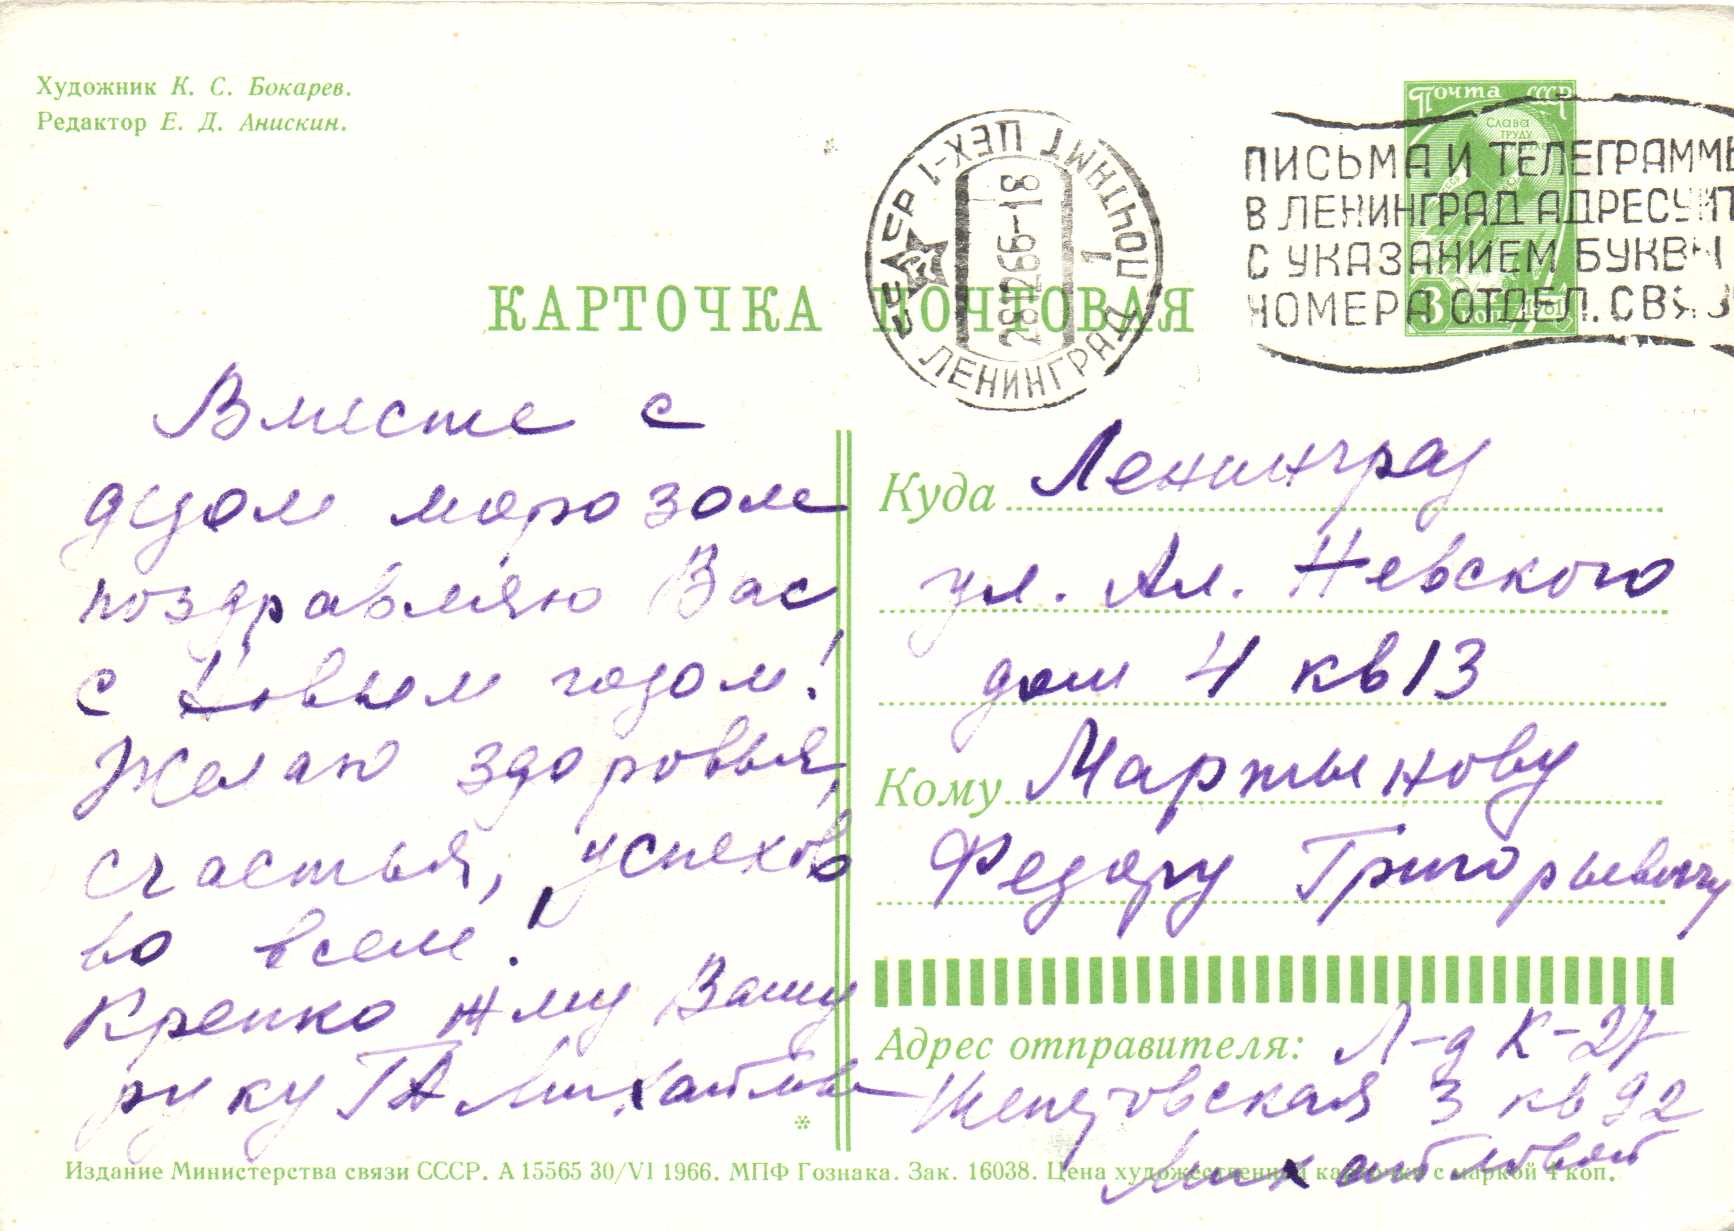 Художник К. С. Бокарев.
Редактор Е. Д. Анискин.
Почта СССР
СЛАВА
ТРУДУ
3 КОП. 1961
СССР
ЛЕНИНГРАД
ПОЧТАМТ ЦЕХ-1
1
281266-18
ПИСЬМА И ТЕЛЕГРАММЫ
В ЛЕНИНГРАД АДРЕСУЙТ
С УКАЗАНИЕМ БУКВЫ
НОМЕРА ОТДЕЛ. СВЯЗ
КАРТОЧКА ПОЧТОВАЯ
Вместе с
дедом морозом
поздравляю Вас
с Новым годом!
Желаю здоровья,
счастья, успехов
во всем!
Крепко жму Вашу
руку ГА Михайлова
Куда Ленинград
ул. Ал. Невского
дом 4 кв 13
Кому Мартынову
Федору Григорьевичу
Адрес отправителя: Л-д К-27
Шепетовская 3 кв 92
Михайловой
*
Издание Министерства связи СССР. А 15565 30/VI 1966. МПФ Гознака. Зак. 16038. Цена художественной карточки с маркой 4 коп.